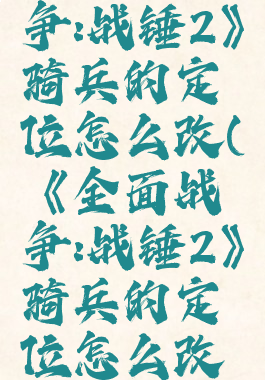 争:战锤2》
骑兵的定
位怎么改(
《全面战
争:战锤2》
骑兵的定
位怎么改